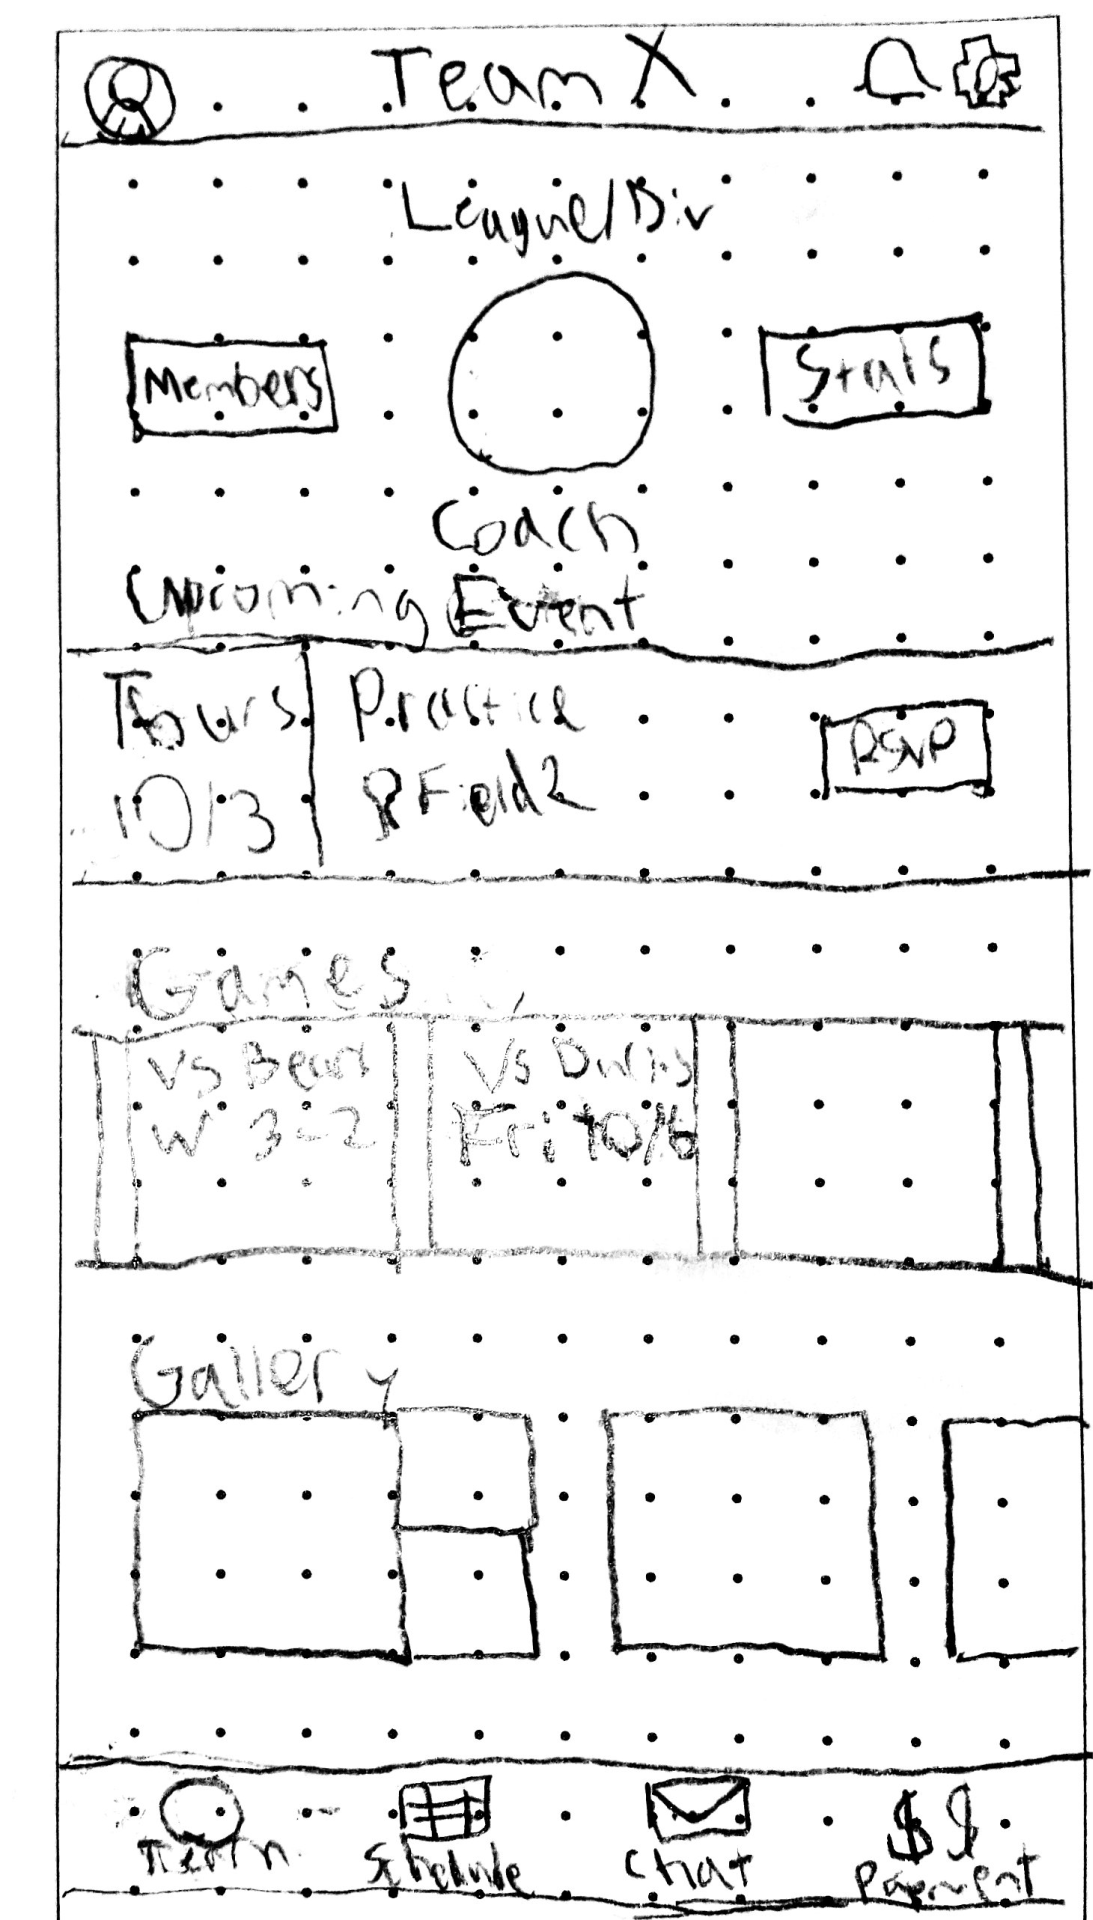 Team X
League/Div
Members
Stats
Coach
Upcoming Event
Thurs
10/3
Practice
Field 2
RSVP
Games
Vs Bears
W 3-2
Vs Ducks
Fri 10/6
Gallery
Team
Schedule
Chat
$$
Payment